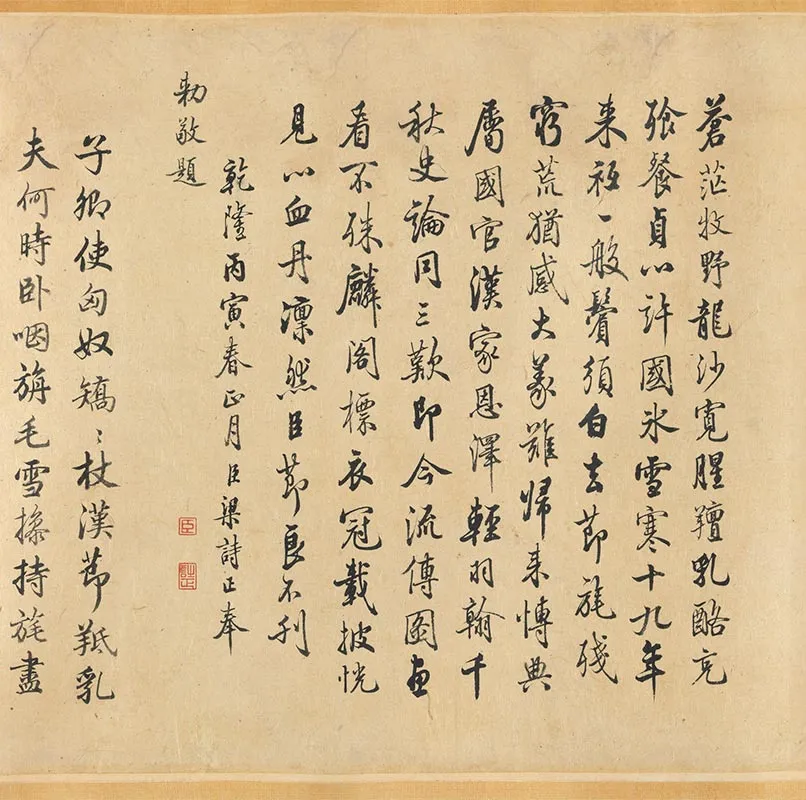 蒼茫牧野龍沙寬腥羶乳酪充
飱餐貞心許國氷雪寒十九年
来祗一般鬢須白去節旄殘
窮荒猶感大義難歸来慱典
屬國官漢家恩澤輕羽翰千
秋史論同三歎即今流傳圖畫
看不殊麟閣標衣冠載披恍
見心血丹凜然臣節良不刊
乾隆丙寅春正月臣梁詩正奉
勅敬題
臣
詩正
子卿使匈奴矯〻杖漢節羝乳
夫何時卧咽旃毛雪操持旄盡